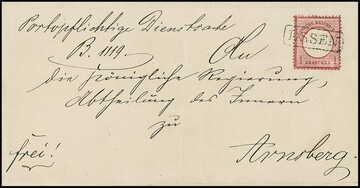 Portopflichtige Dienstsache
B. 1119.
An
die Königliche Regierung,
Abtheilung des Innern
zu
Arnsberg.
frei!
ESSEN